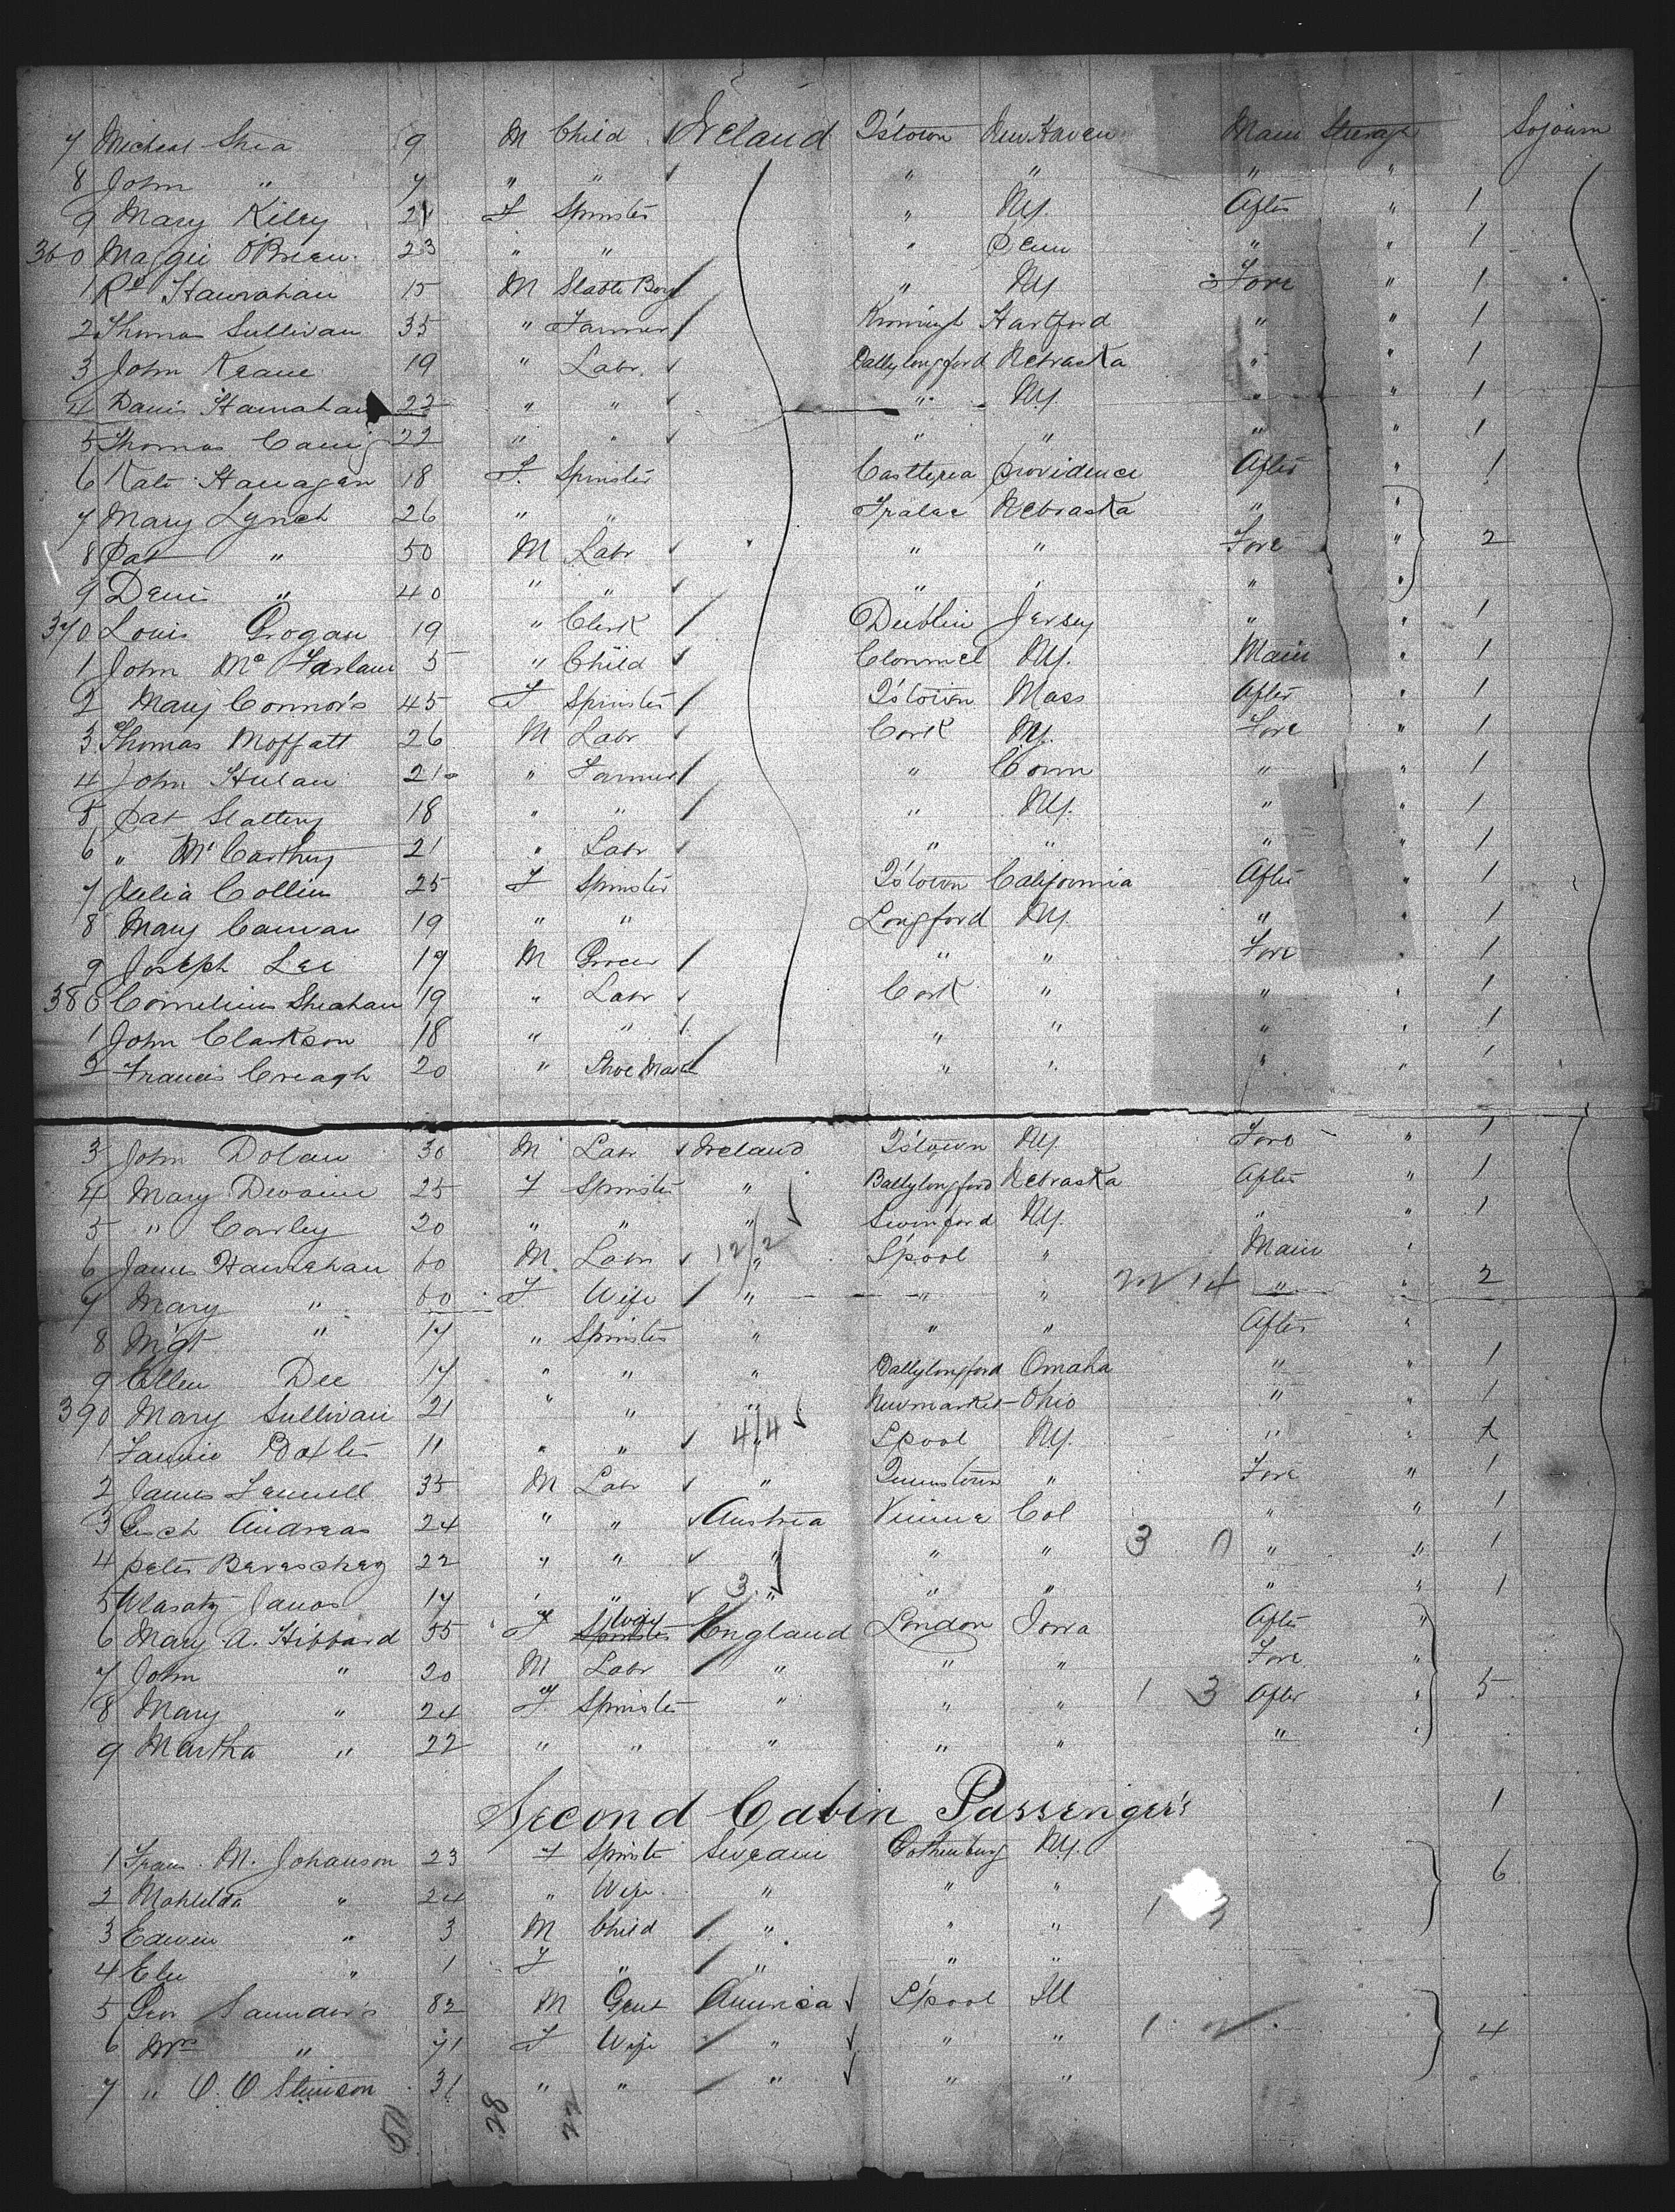 7 Micheal Shea 9 M Child Ireland Q'stown New Haven Main Steerage Sojourn
8 John " 7 " " " " " "
9 Mary Kiley 21 F Spinster " NY. After " 1
360 Maggie O'Brien 23 " " " Penn " " 1
1 Rd Hanrahan 15 M Stable Boy " NY Fore " 1
2 Thomas Sullivan 35 " Farmer Hartford " " 1
3 John Keane 19 " Labr. Ballylongford Nebraska " " 1
4 Denis Hanrahan 22 " " " NY. " " 1
5 Thomas 22 " " " " " " 1
6 Kate Hanagan 18 F. Spinster Castlerea Providence After " 1
7 Mary Lynch 26 " " Tralee Nebraska " "
8 Pat " 50 M Labr " " Fore " 2
9 Denis " 40 " " " " " "
370 Louis Grogan 19 " Clerk Dublin Jersey " " 1
1 John Mc Farlane 5 " Child Clonmel NY. Main " 1
2 Mary Connors 45 F Spinster Q'stown Mass After " 1
3 Thomas Moffatt 26 M Labr Cork NY. Fore " 1
4 John 21 " Farmer " Conn " " 1
5 Pat Slattery 18 " " " NY. " " 1
6 " McCarthy 21 " Labr " " " " 1
7 Julia Collins 25 F Spinster Q'stown California After " 1
8 Mary 19 " " Longford NY. " " 1
9 Joseph Lee 19 M Grocer " " Fore " 1
380 Cornelius Sheahan 19 " Labr Cork " " " 1
1 John Clarkson 18 " " " " " " 1
2 Francis Creagh 20 " Shoe Maker " " " " 1
3 John Dolan 30 M Labr Ireland Q'stown NY. Fore " 1
4 Mary Devaine 25 F Spinster " Ballylongford Nebraska After " 1
5 " Corley 20 " " " Swinford NY. " " 1
6 James Hanrahan 60 M. Labr 12/2 " L'pool " Main "
7 Mary " 60 F Wife " " " 14 " " 2
8 Mgt " 17 " Spinster " " " After "
9 Ellen Dee 17 " " " Ballylongford Omaha " " 1
390 Mary Sullivan 21 " " " Newmarket Ohio " " 1
1 Fannie 11 " " 4/4 " L'pool NY. " " 1
2 James 35 M Labr " Queenstown " Fore " 1
3 Andreas 24 " " Austria Vienna Col " " 1
4 Peter 22 " " " " " 3 0 " " 1
5 Janos 17 " " 3. " " " " " 1
6 Mary A. Hibbard 55 F Wife England London Iowa After "
7 John " 20 M Labr " " " Fore "
8 Mary " 24 F. Spinster " " " 1 3 After " 5
9 Martha " 22 " " " " " " "
Second Cabin Passenger's 1
1 Frans. M. Johanson 23 F Spinster Sweden Gothenburg NY. 6
2 Mathilda " 24 " Wife " " " 1
3 Edwin " 3 M Child " " "
4 " 1 F " " " "
5 Geo Saunders 82 M Gent America L'pool Ill
6 Mrs " 71 F Wife " " " 1 4
7 " O. O Stimson 31 " " " " "
50 28 22